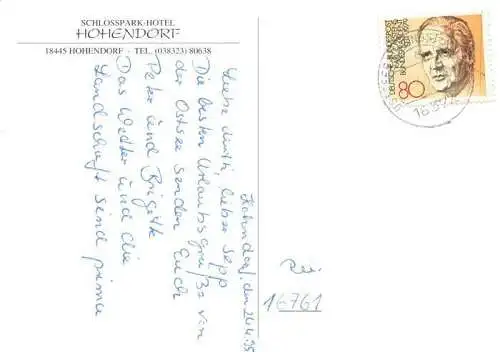 SCHLOSSPARK-HOTEL
HOHENDORF
18445 HOHENDORF - TEL. (038323) 80638
Hohndorf, den 26.4.95
Liebe Ruth, lieber Sepp
Die besten Urlaubsgrüße von
der Ostsee senden Euch
Peter und Brigitte
Das Wetter und die
Landschaft sind prima
16761
80
DEUTSCHE BUNDESPOST